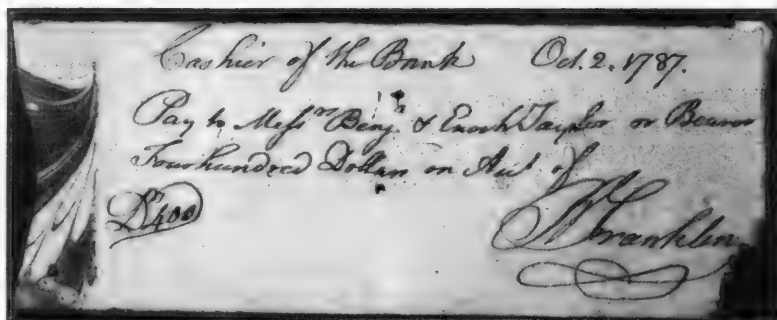 Cashier of the Bank Oct. 2. 1787.
Pay to Messrs Benj.n & Enoch Taylor or Bearer
Four hundred Dollars on Acct of
Ds 400
B Franklin